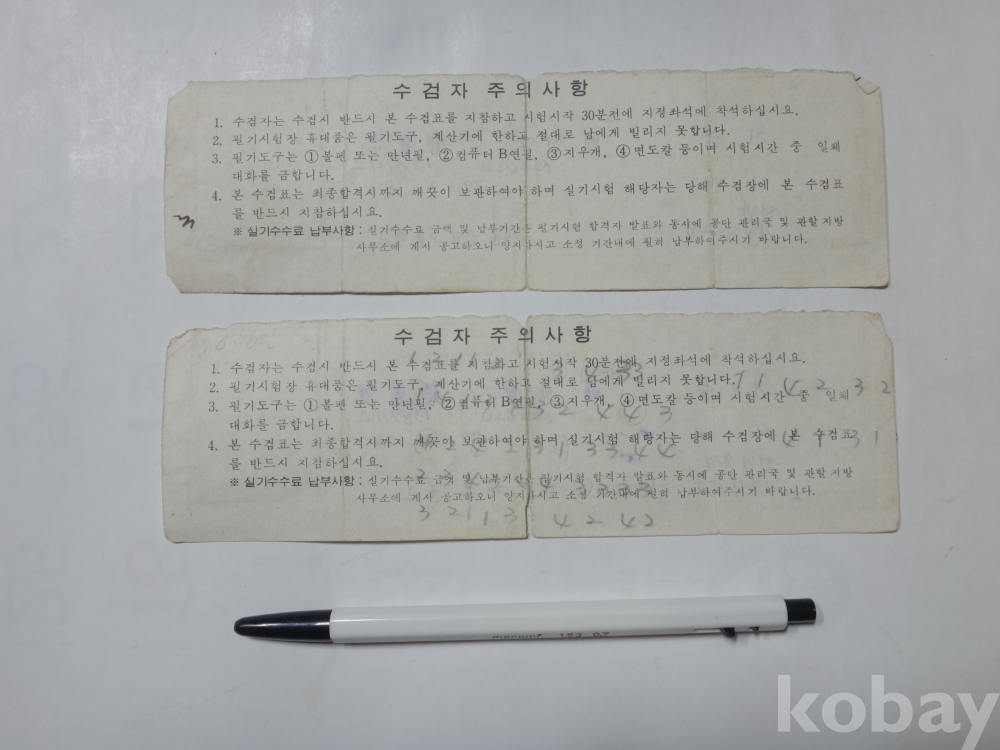 수검자 주의사항
1. 수검자는 수검시 반드시 본 수검표를 지참하고 시험시작 30분전에 지정좌석에 착석하십시요.
2. 필기시험장 휴대품은 필기도구, 계산기에 한하고 절대로 남에게 빌리지 못합니다.
3. 필기도구는 ①볼펜 또는 만년필, ②컴퓨터 B연필, ③지우개, ④면도칼 등이며 시험시간 중 일체
대화를 금합니다.
4. 본 수검표는 최종합격시까지 깨끗이 보관하여야 하며 실기시험 해당자는 당해 수검장에 본 수검표
를 반드시 지참하십시요.
※ 실기수수료 납부사항 : 실기수수료 금액 및 납부기간은 필기시험 합격자 발표와 동시에 공단 관리국 및 관할지방
사무소에 게시 공고하오니 양지하시고 소정 기간내에 필히 납부하여주시기 바랍니다.
수검자 주의사항
1. 수검자는 수검시 반드시 본 수검표를 지참하고 시험시작 30분전에 지정좌석에 착석하십시요.
2. 필기시험장 휴대품은 필기도구, 계산기에 한하고 절대로 남에게 빌리지 못합니다.
3. 필기도구는 ①볼펜 또는 만년필, ②컴퓨터 B연필, ③지우개, ④면도칼 등이며 시험시간 중 일체
대화를 금합니다.
4. 본 수검표는 최종합격시까지 깨끗이 보관하여야 하며 실기시험 해당자는 당해 수검장에 본 수검표
를 반드시 지참하십시요.
※ 실기수수료 납부사항 : 실기수수료 금액 및 납부기간은 필기시험 합격자 발표와 동시에 공단 관리국 및 관할지방
사무소에 게시 공고하오니 양지하시고 소정 기간내에 필히 납부하여주시기 바랍니다.
3 2 1 1 3 4 2 4 2
monami 153
kobay